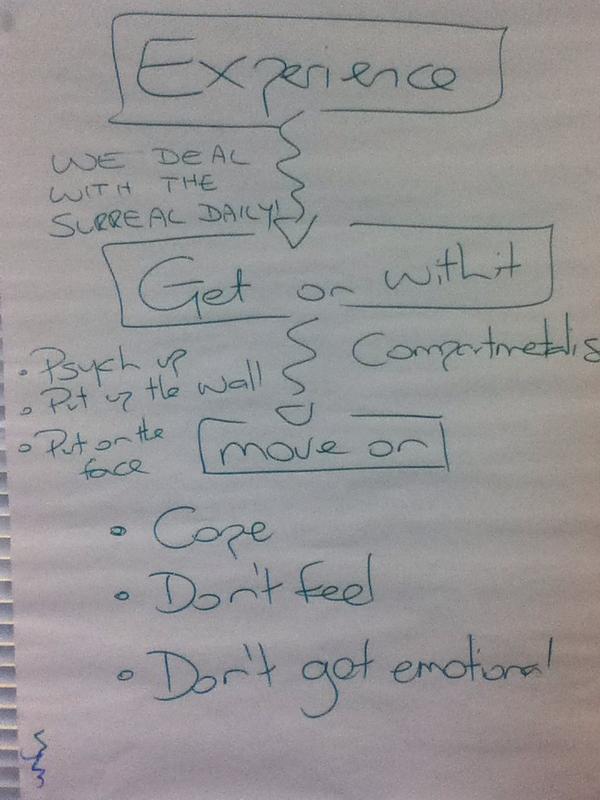 Experience
WE DEAL
WITH THE
SURREAL DAILY!
Get on with it
Compartmetalis
• Psych up
• Put up the wall
• Put on the
face
move on
• Cope
• Don't feel
• Don't get emotional